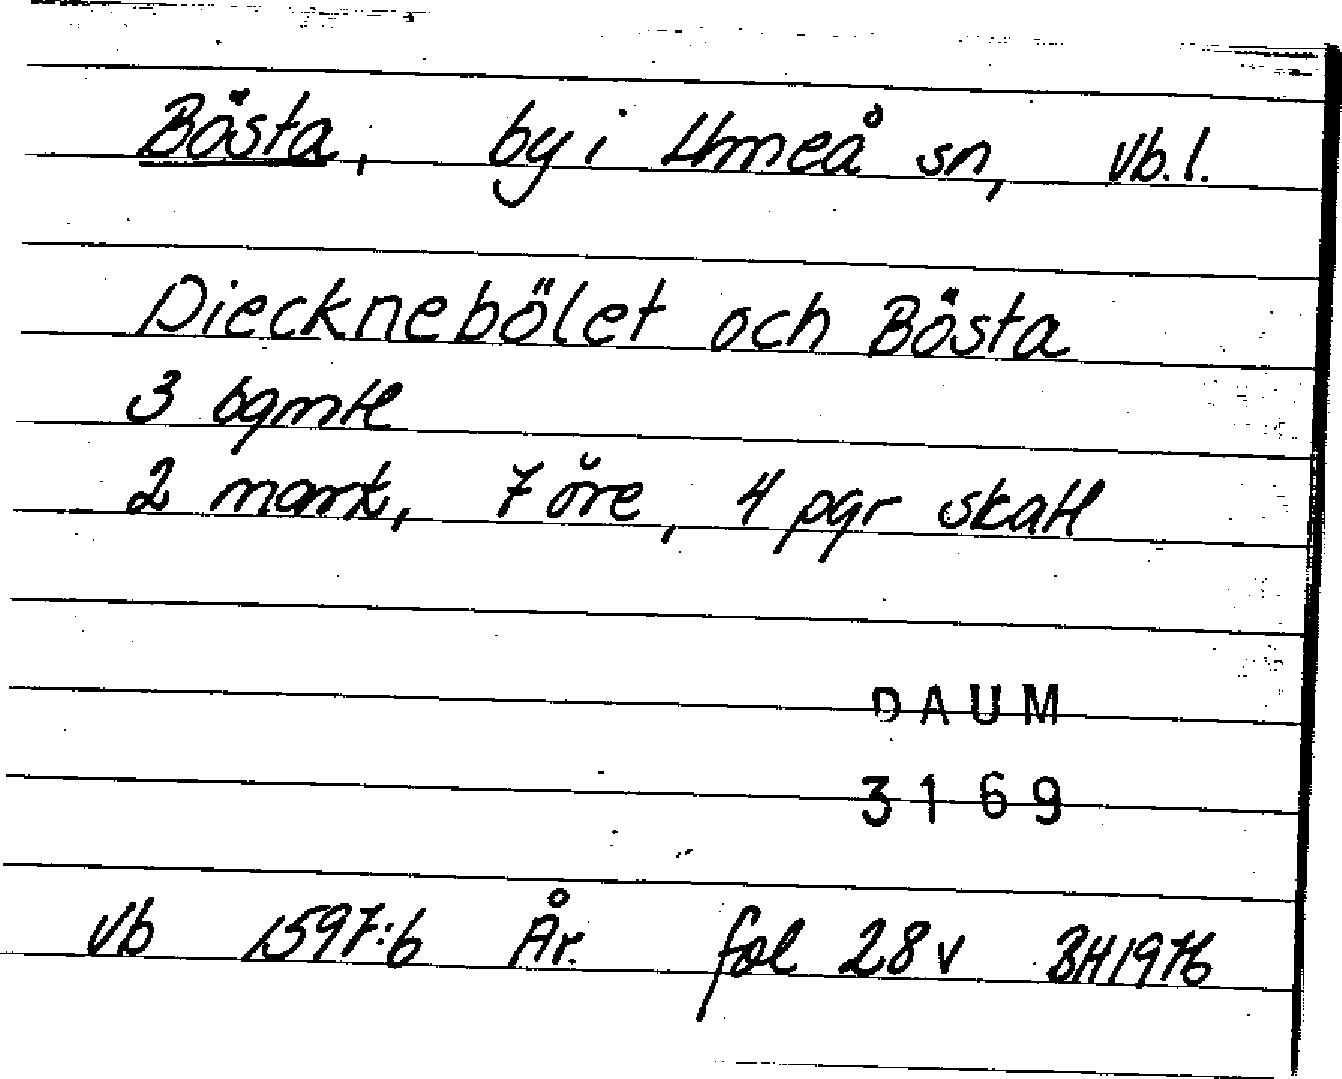 Bösta, by i Umeå sn, Vb. l.
Diecknebölet och Bösta
3 bgmtl
2 mark, 7 öre, 4 pgr skatt
DAUM
3169
Vb 1597:6 År. fol 28 v BH 1976